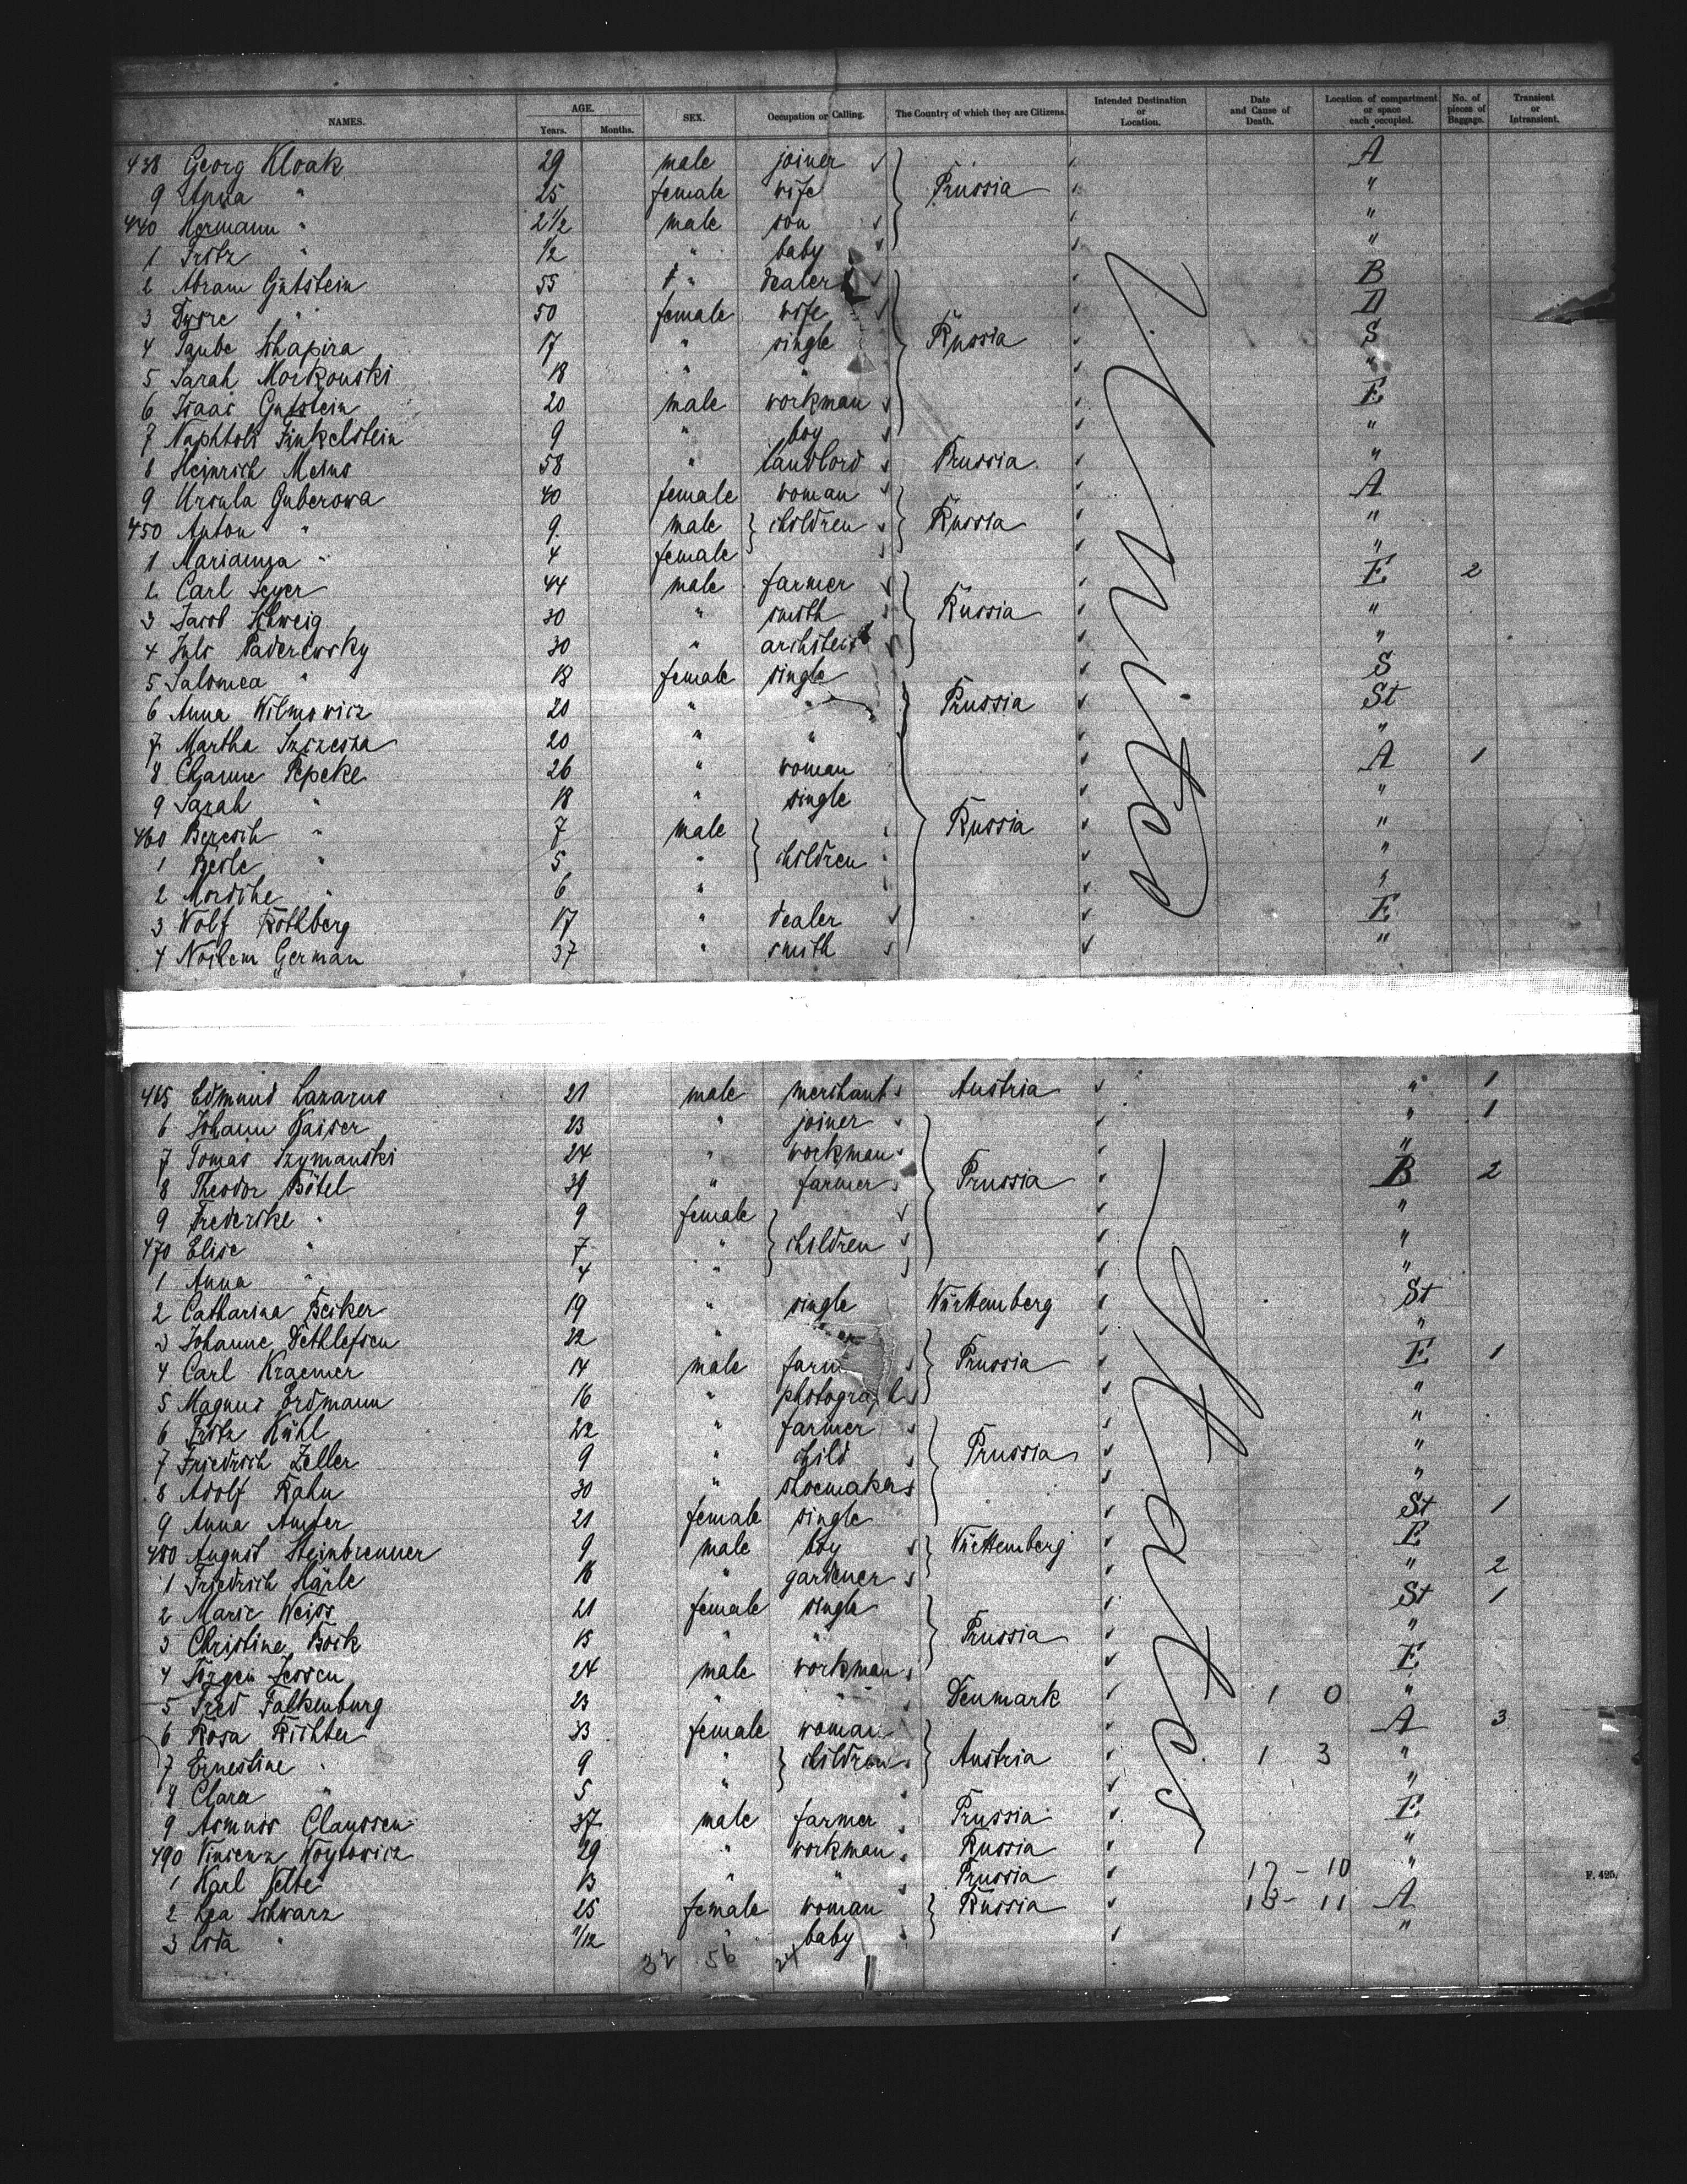 NAMES. AGE. Years. Months. SEX. Occupation or Calling. The Country of which they are Citizens. Intended Destination or Location. Date and Cause of Death. Location of compartment or space each occupied. No. of pieces of Baggage. Transient or Intransient.
438 Georg Kloak 29 male joiner A
9 Anna " 25 female wife Prussia "
440 Hermann " 2 1/2 male son "
1 Fritz " 1/2 " baby "
2 Abram Gutstein 55 " dealer B
3 " 50 female wife
4 Taube Schapira 17 " single Russia S
5 Sarah Morkouski 18 " " "
6 Isaac Gutstein 20 male workman E
7 Naphtoli Finkelstein 9 " boy "
8 Heinrich Meins 58 " landlord Prussia "
9 Ursula Guberowa 40 female woman A
450 Anton " 9 male children Russia "
1 Marianna " 4 female "
2 Carl 44 male farmer E 2
3 Jacob Schweig 30 " smith Russia "
4 Juls Paderewsky 30 " "
5 Salomea " 18 female single S
6 Anna Wilmowicz 20 " " Prussia St
7 Martha 20 " " "
8 Channe Pepcke 26 " woman A 1
9 Sarah " 18 " single "
460 Beresch " 7 male Russia "
1 Beile " 5 " children "
2 Mordche " 6 " "
3 Wolf Rothberg 17 " dealer E
4 Nochem German 37 " smith "
465 Edmund Lazarus 21 male merchant Austria " 1
6 Johann Kaiser 23 " joiner " 1
7 Tomas Szymanski 24 " workman "
8 Theodor Bötel 39 " farmer Prussia B 2
9 Frederike " 9 female "
470 Elise " 7 " children "
1 Anna " 4 " "
2 Catharina Beiker 19 " single Württemberg St
3 Johanne Dethlefsen 22 " "
4 Carl Kraemer 14 male farm Prussia E 1
5 Magnus Erdmann 16 " photograph "
6 Fritz Kühl 22 " farmer "
7 Friedrich Zeller 9 " child Prussia "
8 Adolf Rahn 30 " shoemaker "
9 Anna 21 female single St 1
480 August Steinbrenner 9 male boy Württemberg E
1 Friedrich Härle 16 " gardener " 2
2 Marie Weiss 21 female single St 1
3 Christine Boik " " Prussia "
4 Jörgen Jessen 24 male workman E
5 Fred Falkenburg 23 " " Denmark 1 0 "
6 Rosa Richter 33 female woman A 3
7 Ernestine " 9 " children Austria 1 3 "
8 Clara " 5 " "
9 Asmuss Claussen 37 male farmer Prussia E
490 Vincenz Woytowicz 29 " workman Russia "
1 Karl " " Prussia 17 - 10 "
2 Lea Schwarz 25 female woman Russia 18 - 11 A
3 " 11/12 " baby "
32 56 24
F. 425.